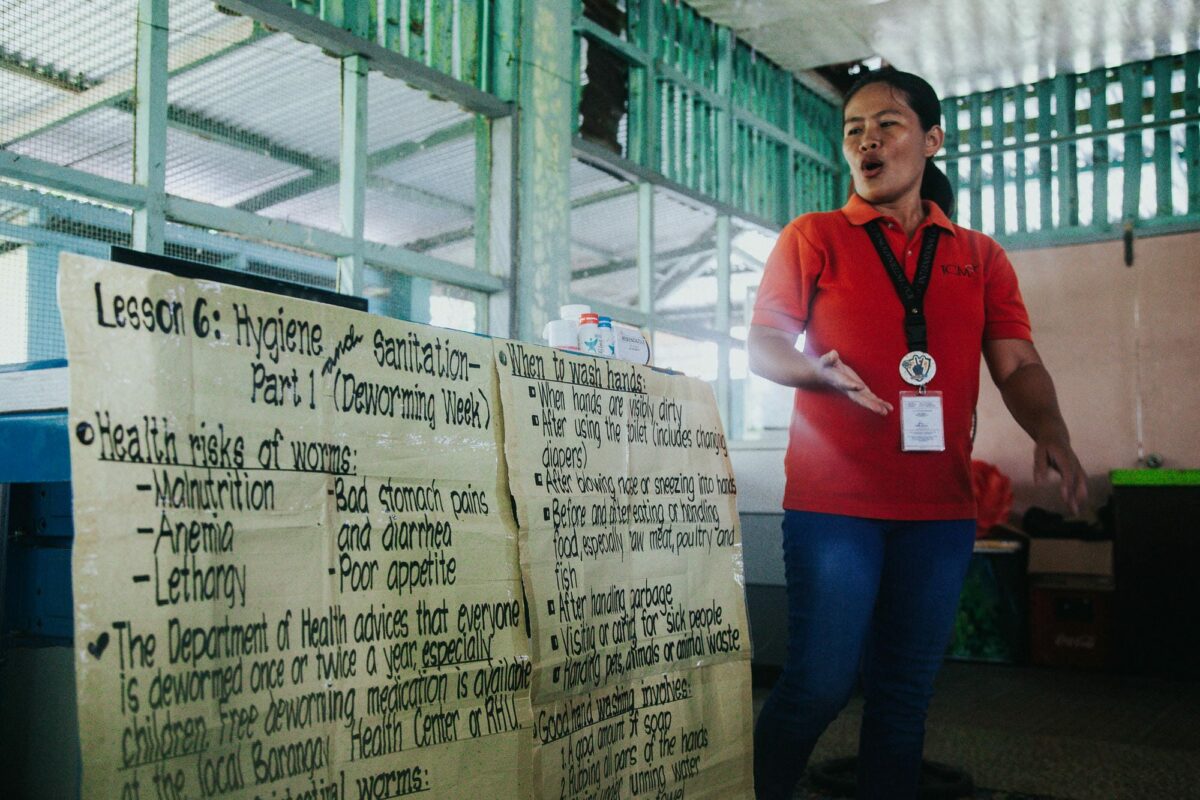 Lesson 6: Hygiene and Sanitation-
Part 1 (Deworming Week)
Health risks of worms:
-Malnutrition
-Anemia
-Lethargy
-Bad stomach pains
and diarrhea
-Poor appetite
The Department of Health advices that everyone
is dewormed once or twice a year, especially
children. Free deworming medication is available
at the local Barangay Health Center or RHU.
worms:
When to wash hands:
When hands are visibly dirty
After using the toilet (includes changing
diapers)
After blowing nose or sneezing into hands
Before and after eating or handling
food, especially raw meat, poultry and
fish
After handling garbage
Visiting or caring for sick people
Handling pets, animals or animal waste
Good hand washing involves:
1. A good amount of soap
2. Rubbing all parts of the hands
running water
towel
ICM
Coca-Cola